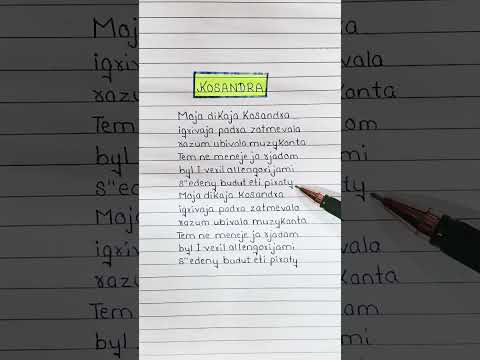 KOSANDRA
Maja diKaja Kosandra
igrivaja padra zatmevala
razum ubivala muzyKanta
Tem ne meneje ja rjadom
byl I veril allengorijami
s"edeny budut eti piraty
Maja diKaja Kosandra
igrivaja padra zatmevala
razum ubivala muzyKanta
Tem ne meneje ja rjadom
byl I veril allengorijami
s"edeny budut eti piraty